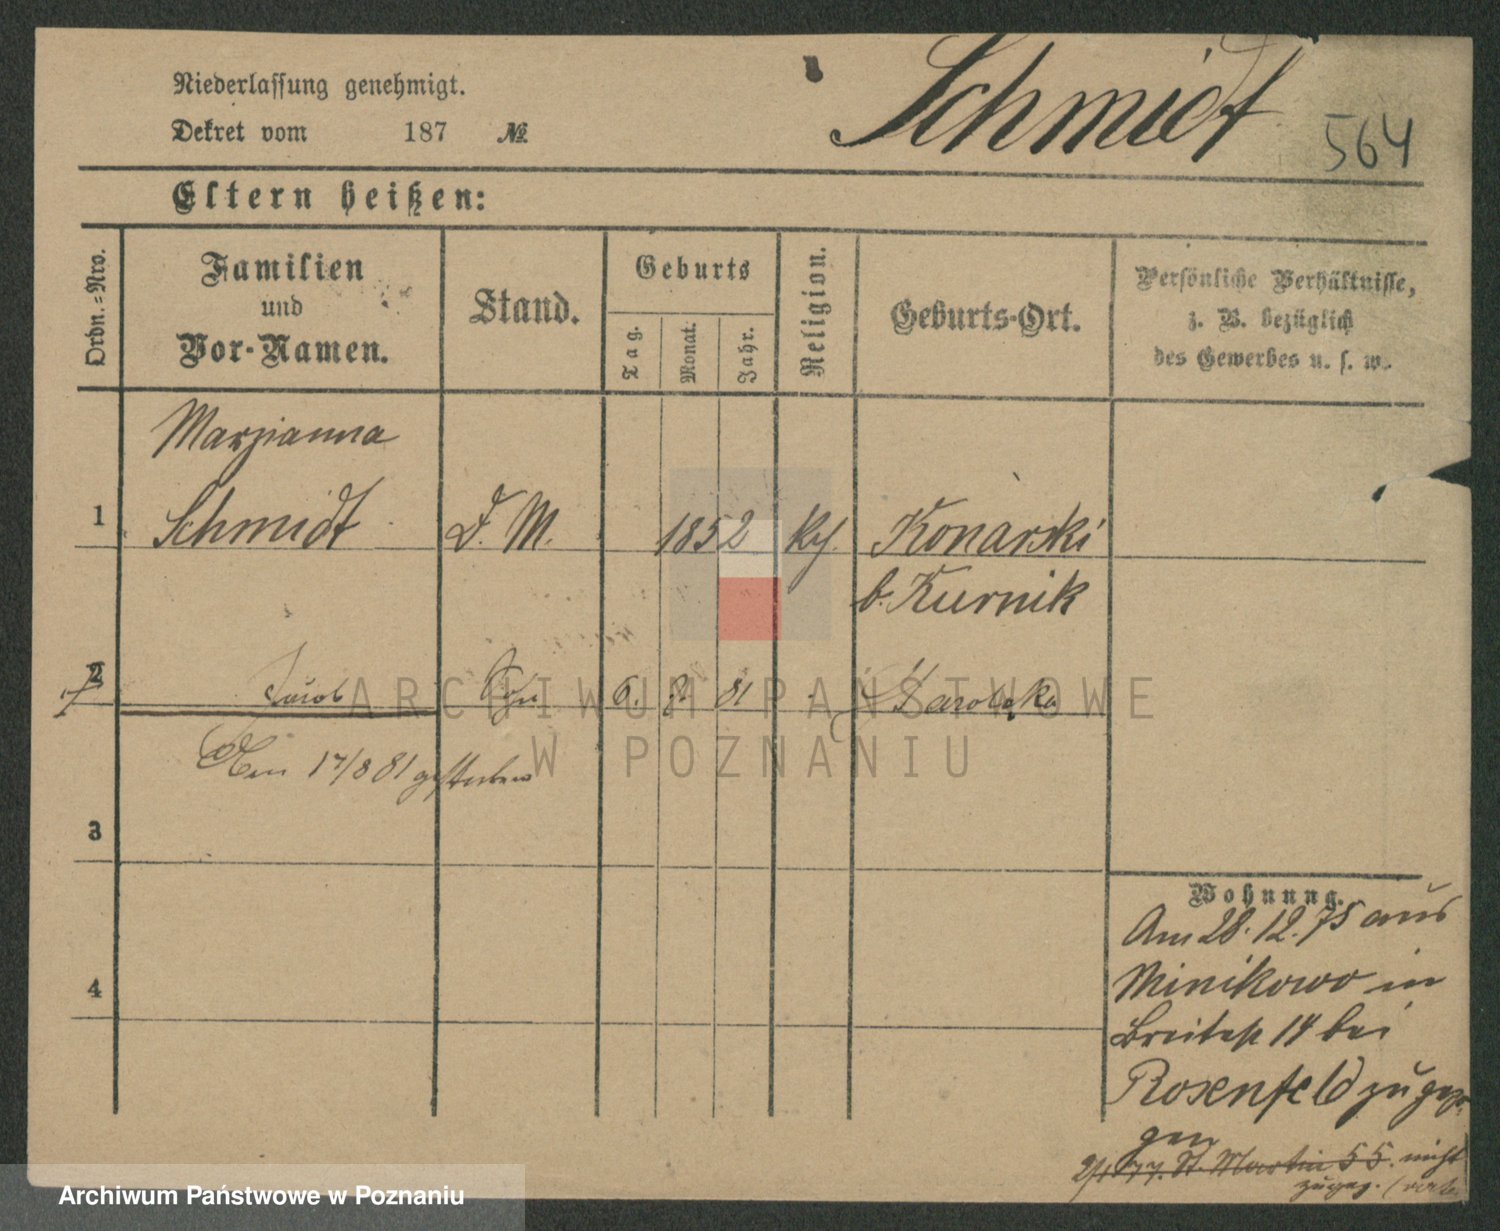 Niederlassung genehmigt.
Dekret vom 187 №
Schmidt
564
Eltern heißen:
Ordn.-Nro.
Familien
und
Vor-Namen.
Stand.
Geburts
Tag.
Monat.
Jahr.
Religion.
Geburts-Ort.
Persönliche Verhältnisse,
z. B. bezüglich
des Gewerbes u. s. w.
Marzianna
1 Schmidt D. M. 1852 Konarski
b. Kurnik
2 Jacob 6. 8. 81
Am 17/8 81 gestorben
3
4
Wohnung.
Am 28.12.75 aus
Minikowo in
Breitestr 14 bei
Rosenfeld zugezo-
gen
St. Martin 55. nicht
zugez.
ARCHIWUM PAŃSTWOWE
W POZNANIU
Archiwum Państwowe w Poznaniu